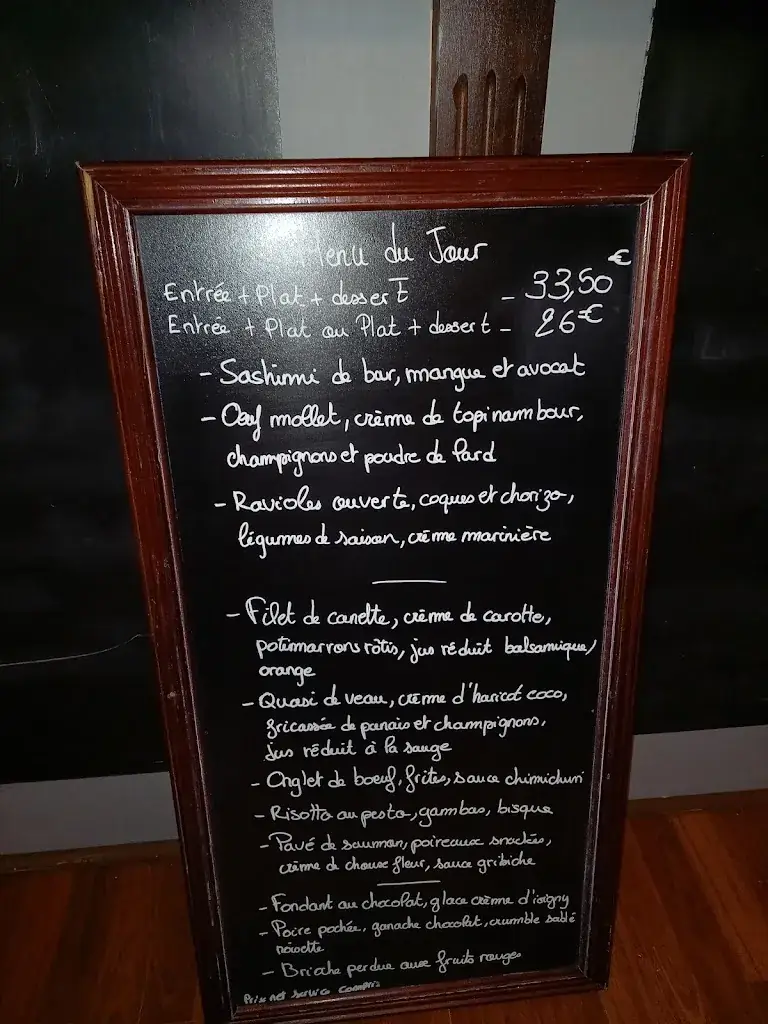 Menu du Jour
Entrée + Plat + dessert - 33,50 €
Entrée + Plat ou Plat + dessert - 26 €
- Sashimi de bar, mangue et avocat
- Oeuf mollet, crème de topinambour,
champignons et poudre de lard
- Ravioles ouverte, coques et chorizo,
légumes de saison, crème marinière
- Filet de canette, crème de carotte,
potimarrons rôtis, jus réduit balsamique/
orange
- Quasi de veau, crème d'haricot coco,
fricassée de panais et champignons,
jus réduit à la sauge
- Onglet de boeuf, frites, sauce chimichuri
- Risotto au pesto, gambas, bisque
- Pavé de saumon, poireaux snackés,
crème de choux fleur, sauce gribiche
- Fondant au chocolat, glace crème d'isigny
- Poire pochée, ganache chocolat, crumble sablé
noisette
- Brioche perdue aux fruits rouges
Prix net service compris